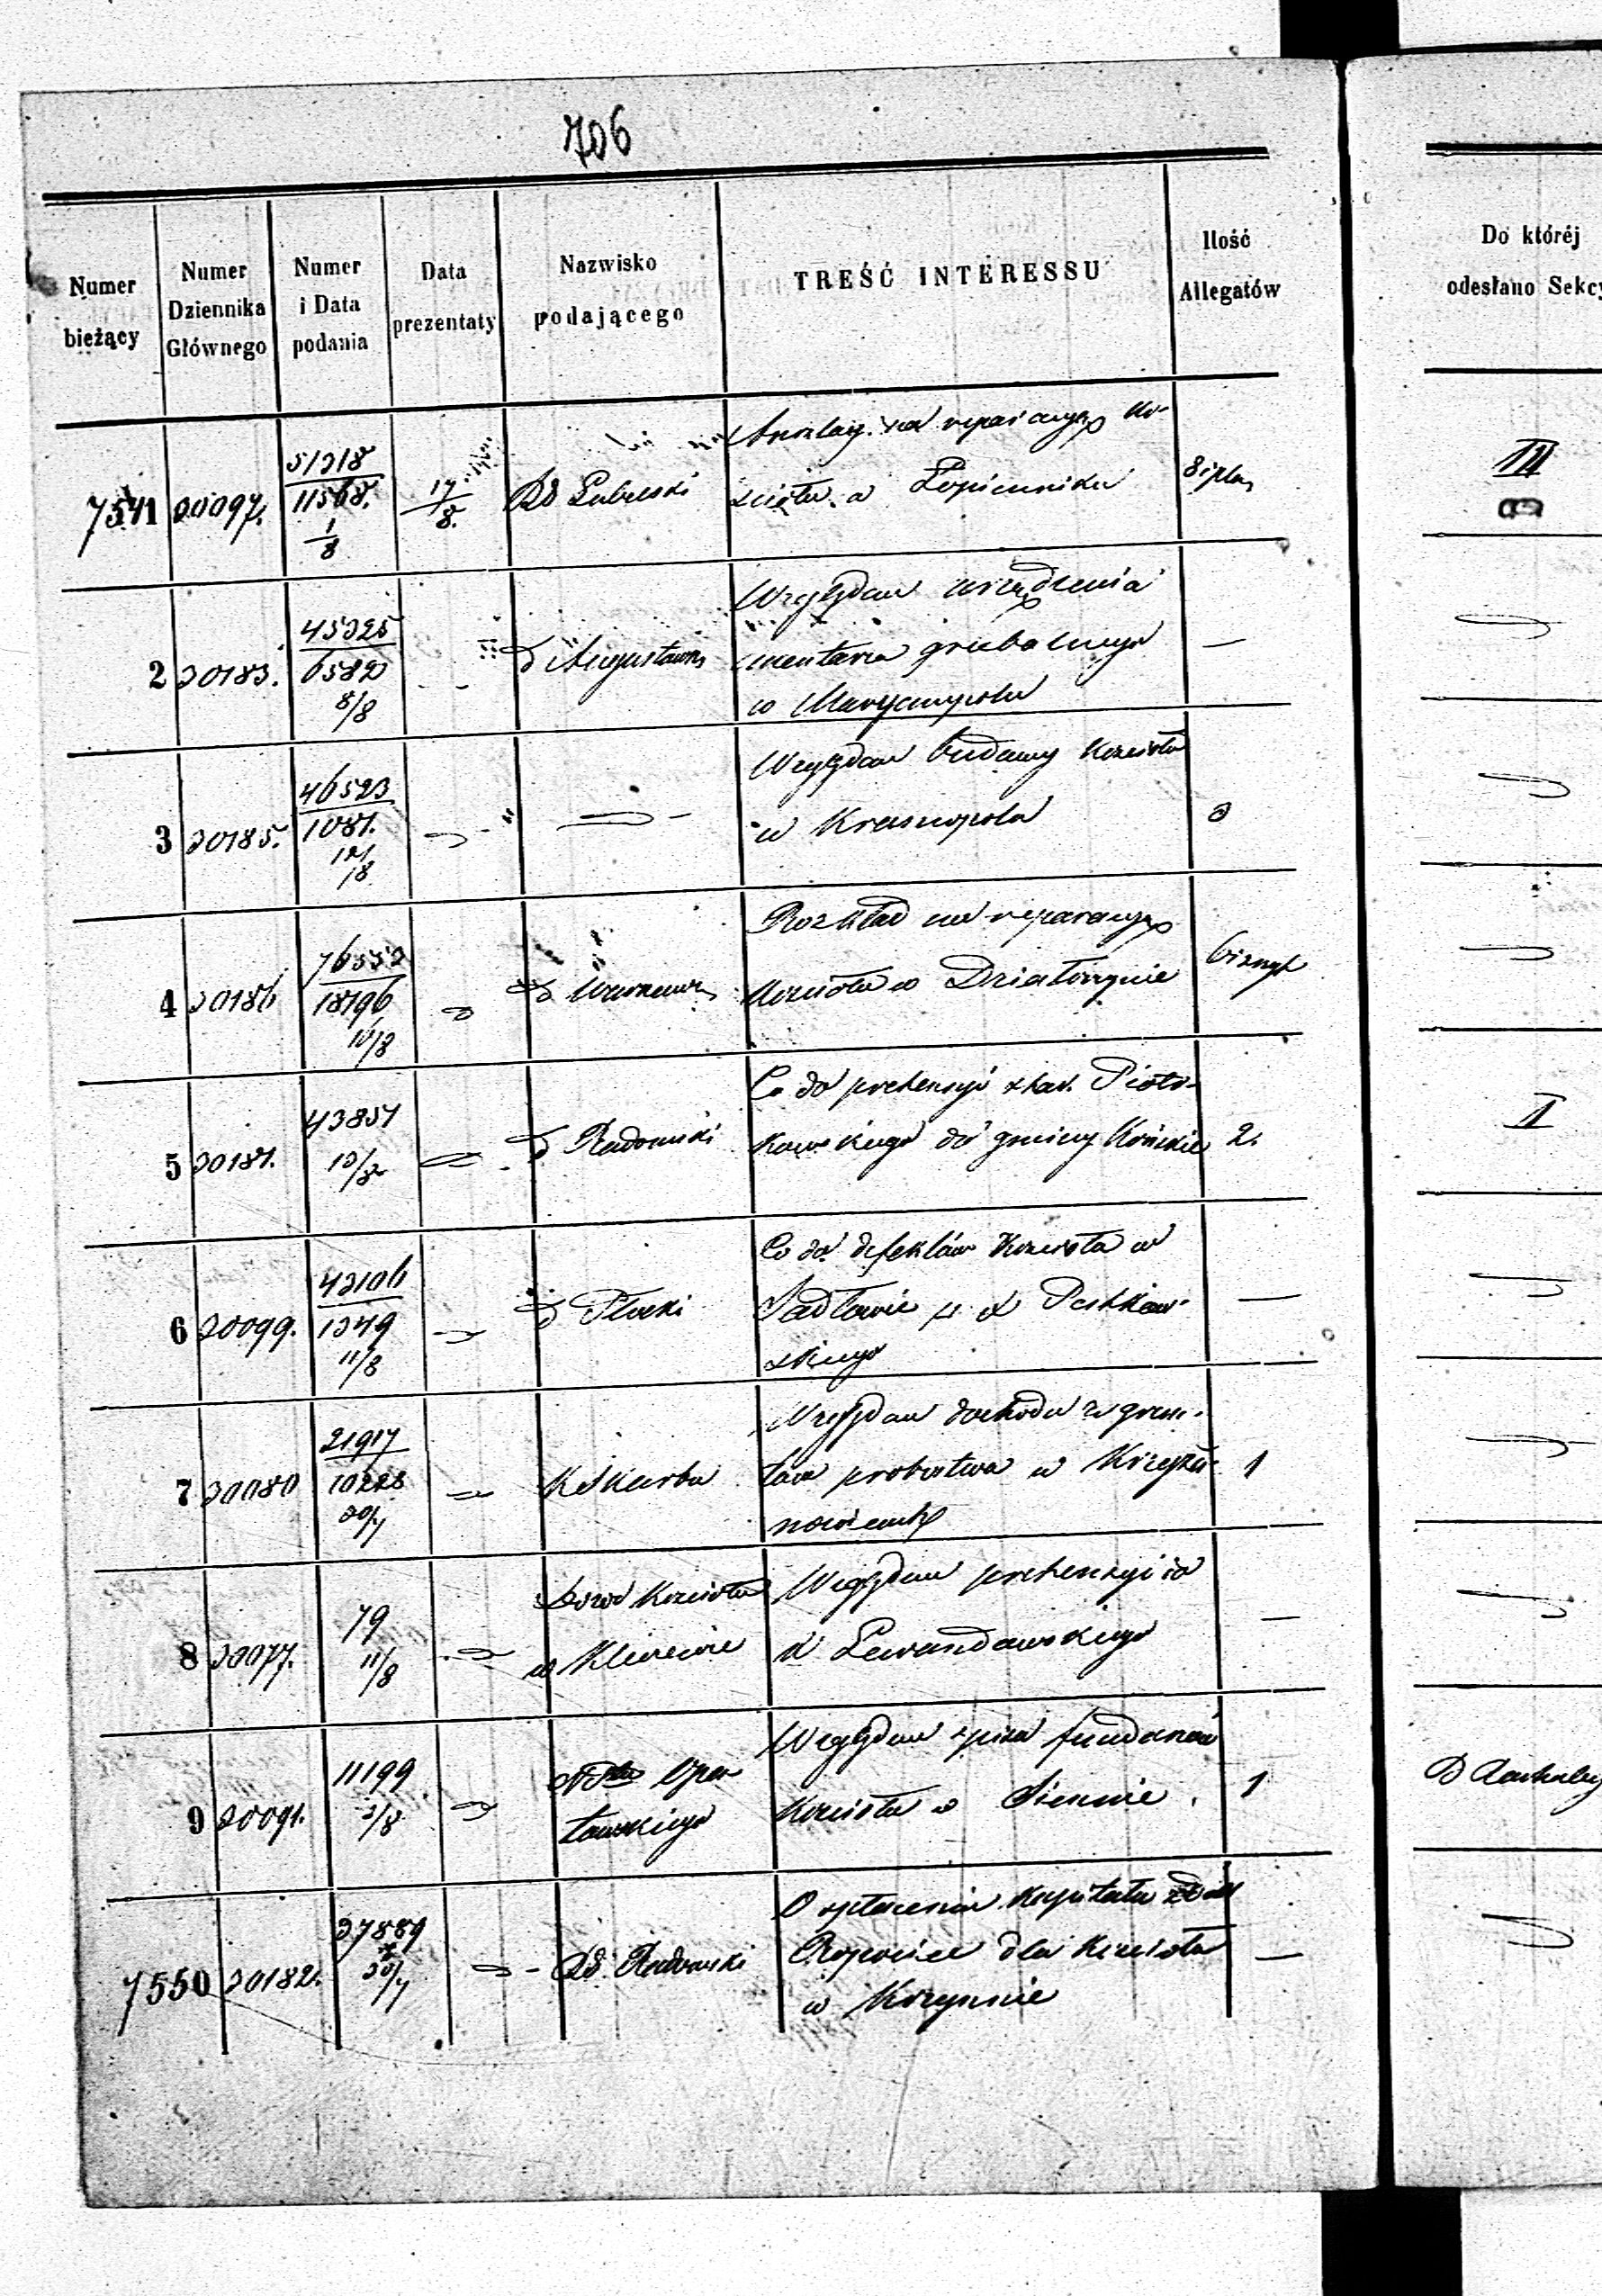 706
Numer bieżący
Numer Dziennika Głównego
Numer i Data podania
Data prezentaty
Nazwisko podającego
TREŚĆ INTERESSU
Ilość Allegatów
Do któréj
odesłano Sekcy
7541 20097. 51218 11568. 1/8 17/8. Rd Lubelski
na reparacyę Ko-
ścioła w Łopienniku
III
2 20183. 45325 6582 8/8 d Augustowski
Względem urządzenia
cmentarza grzebalnego
w Maryampolu —
3 20185. 46523 1087. 12/8
Względem budowy Kościoła
w Krasnopolu
4 20186 76552 18196 10/8 d Warszaws
Rozkład na reparacyę
Kościoła w Działoszynie
5 20187. 43857 10/8 d Radomski
Co do pretensyi Piotr-
kowskiego do gminy Końskie 2.
II
6 20099. 42106 1349 11/8 d Płocki
Co do defektów Kościoła w
Sadłowie p. X Piotrkow-
skiego —
7 20080 21917 10228 20/7 K Skarbu
Względem dochodu z grun-
tów probostwa w Krzyża-
nowicach 1
8 20077. 79 11/8 Dozór Kościoła
w Klwowie
Względem pretensyi
X Lewandowskiego —
9 20091. 11199 3/8 Opa-
towskiego
Względem spisu funduszów
Kościoła w Siennie. 1
7550 20182. 37889 20/7 Rd. Radomski
O wypłacenia Kapitału z dóbr
dla Kościoła
w Krzynnie —